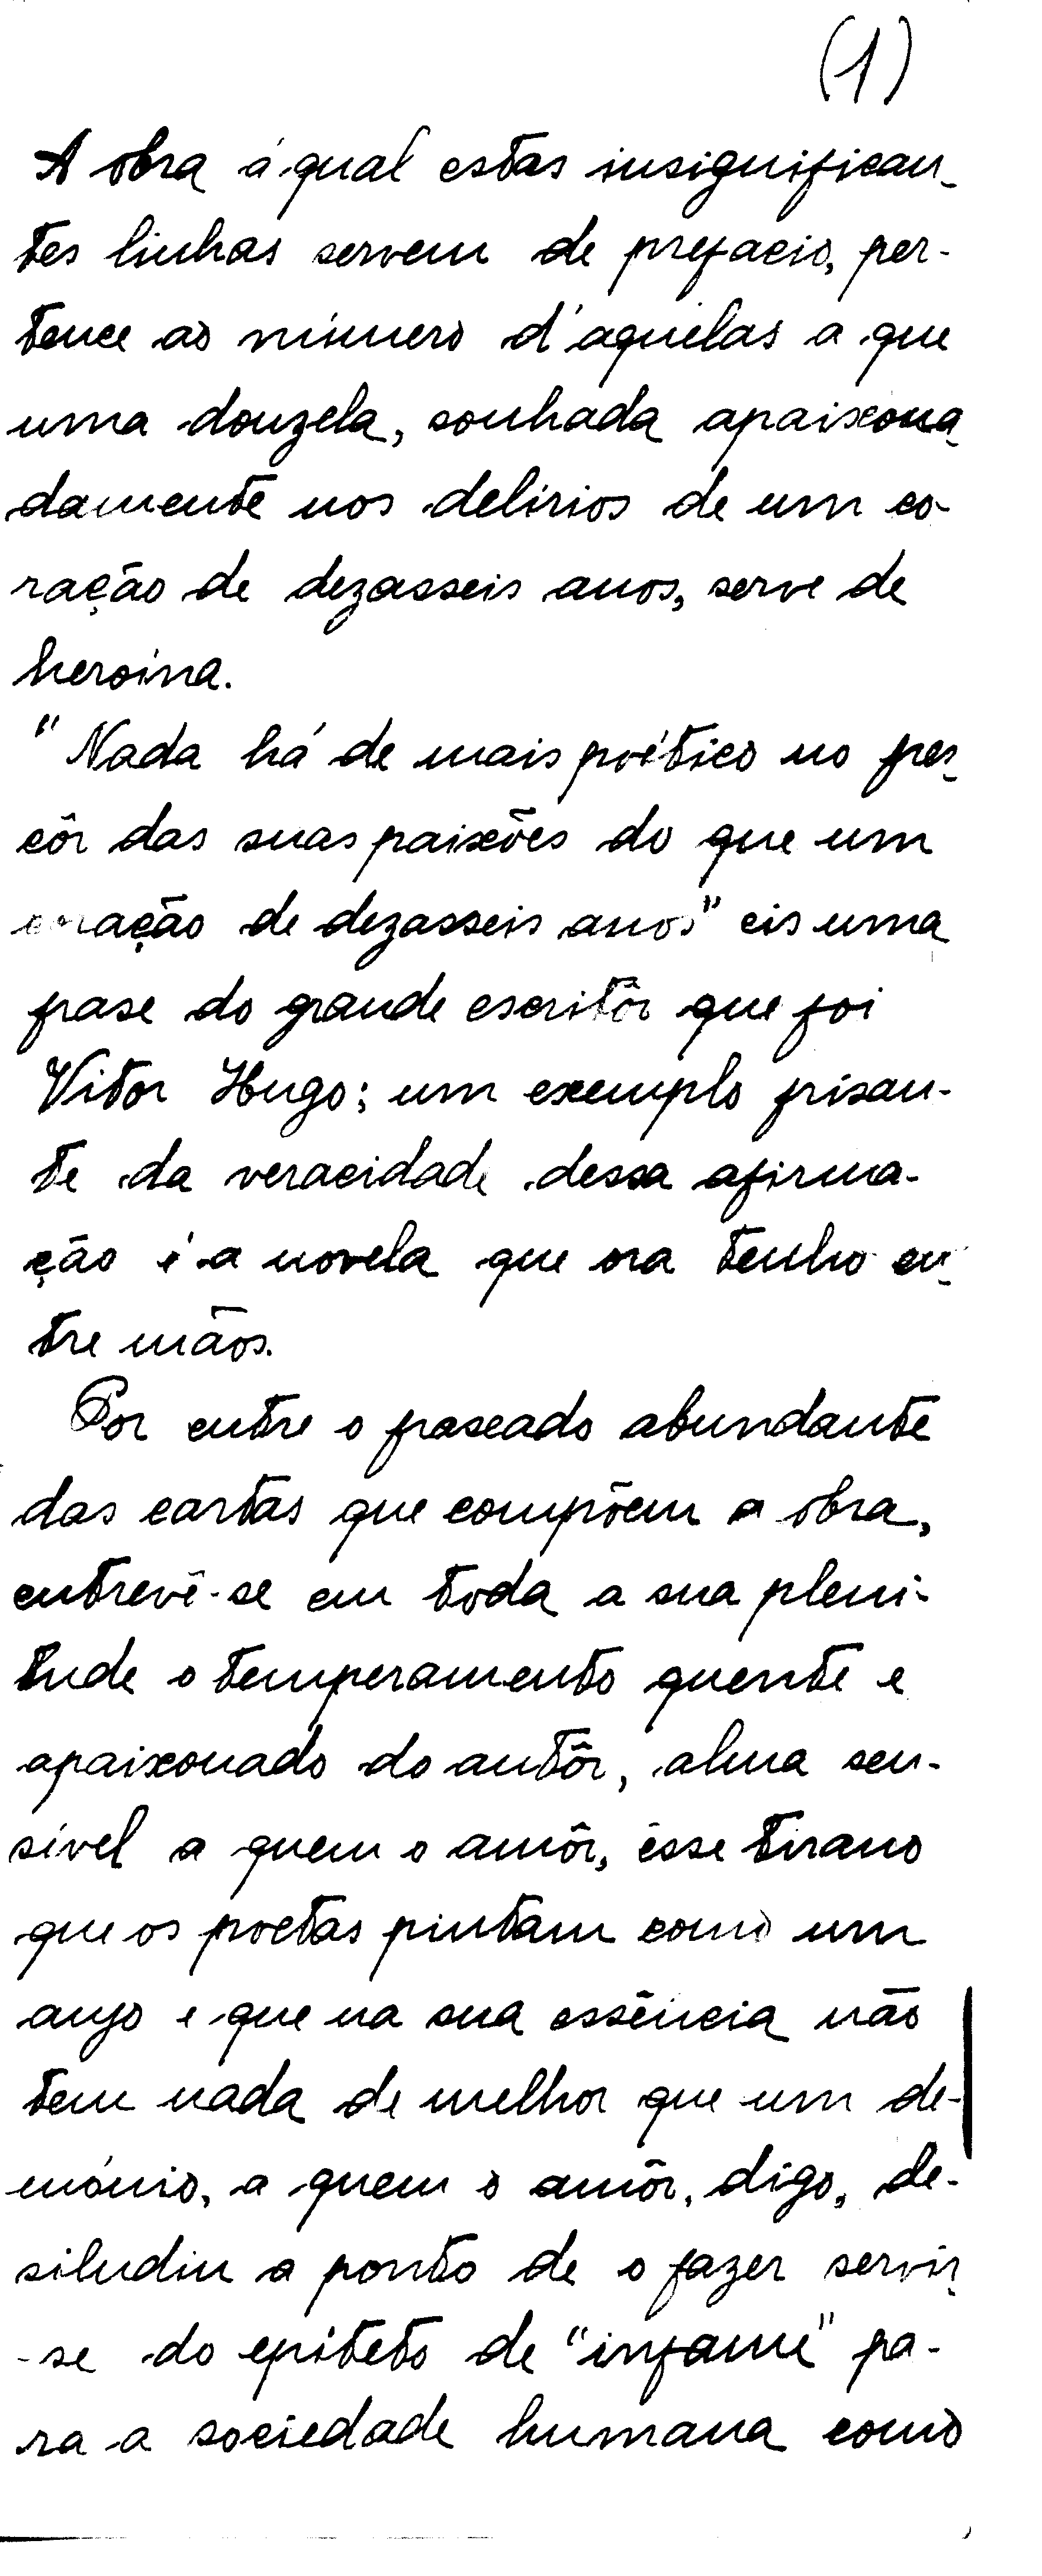 (1)
A obra á qual estas insignifican-
tes linhas servem de prefacio, per-
tence ao número d'aquelas a que
uma donzela, sonhada apaixona-
damente nos delírios de um co-
ração de dezasseis anos, serve de
heroína.
"Nada há de mais poético no fres-
côr das suas paixões do que um
coração de dezasseis anos" eis uma
frase do grande escritôr que foi
Vitor Hugo; um exemplo frisan-
te da veracidade dessa afirma-
ção é a novela que ora tenho en-
tre mãos.
Por entre o fraseado abundante
das cartas que compõem a obra,
entrevê-se em toda a sua pleni-
tude o temperamento quente e
apaixonado do autôr, alma sen-
sível a quem o amôr, êsse tirano
que os poetas pintam como um
anjo e que na sua essência não
tem nada de melhor que um de-
mónio, a quem o amôr, digo, de-
siludiu a ponto de o fazer servir-
-se do epíteto de "infame" pa-
ra a sociedade humana como